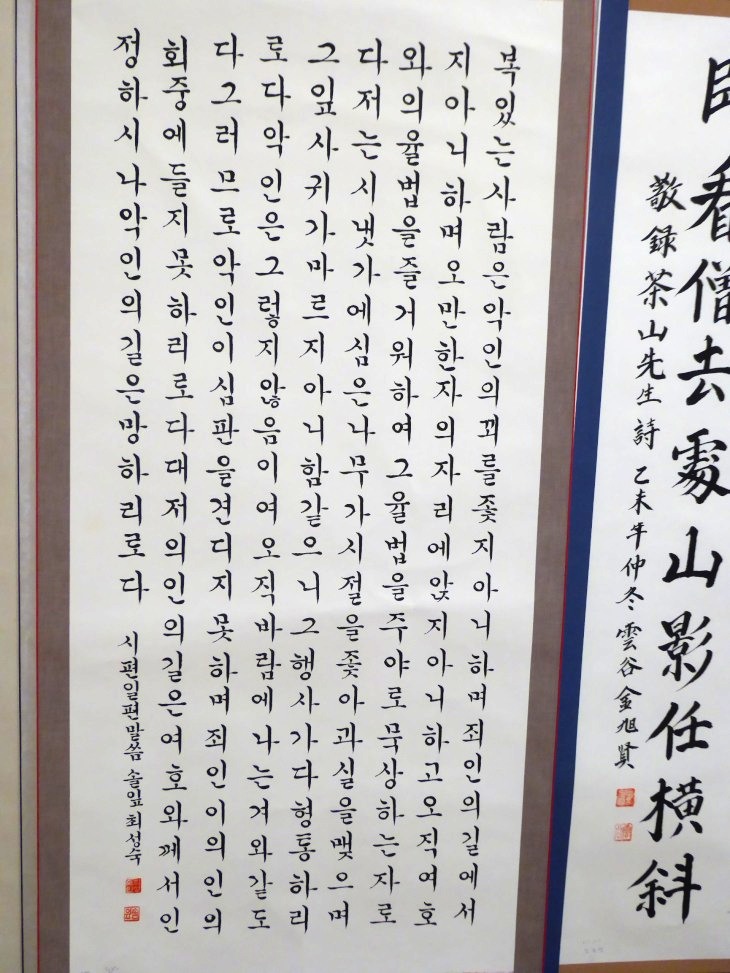 복있는사람은악인의꾀를좇지아니하며죄인의길에서
지아니하며오만한자의자리에앉지아니하고오직여호
와의율법을즐거워하여그율법을주야로묵상하는자로
다저는시냇가에심은나무가시절을좇아과실을맺으며
그잎사귀가마르지아니함같으니그행사가다형통하리
로다악인은그렇지않음이여오직바람에나는겨와같도
다그러므로악인이심판을견디지못하며죄인이의인의
회중에들지못하리로다대저의인의길은여호와께서인
정하시나악인의길은망하리로다
시편일편말씀 솔잎 최성숙
看僧去處山影任橫斜
敬録茶山先生詩 乙未年仲冬 雲谷金旭賢